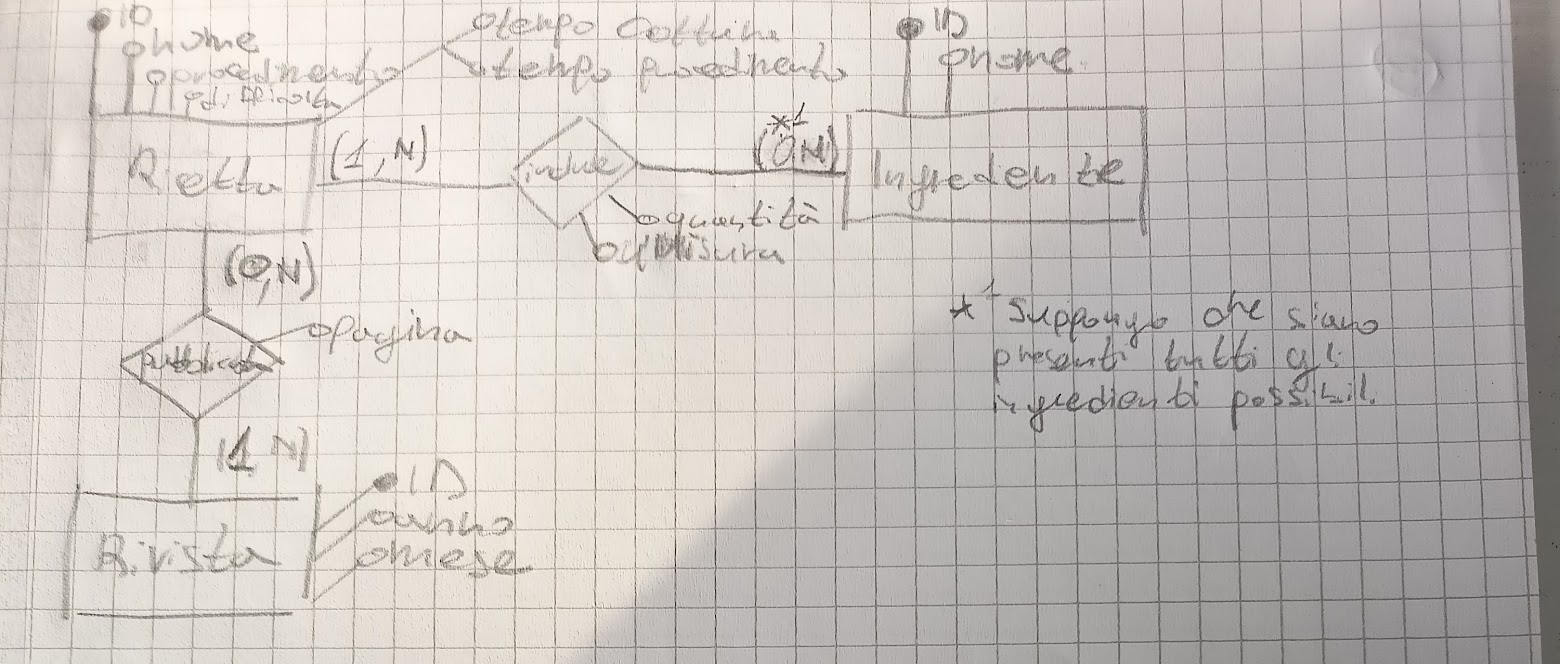 ID
nome
procedimento
difficolta
tempo Cottura
tempo procedimento
ID
nome
Ricetta
(1,N)
include
*1
(0,N)
Ingrediente
quantità
misura
(0,N)
pagina
pubblicata
(1,N)
Rivista
ID
anno
mese
*1 Suppongo che siano
presenti tutti gli
ingredienti possibili